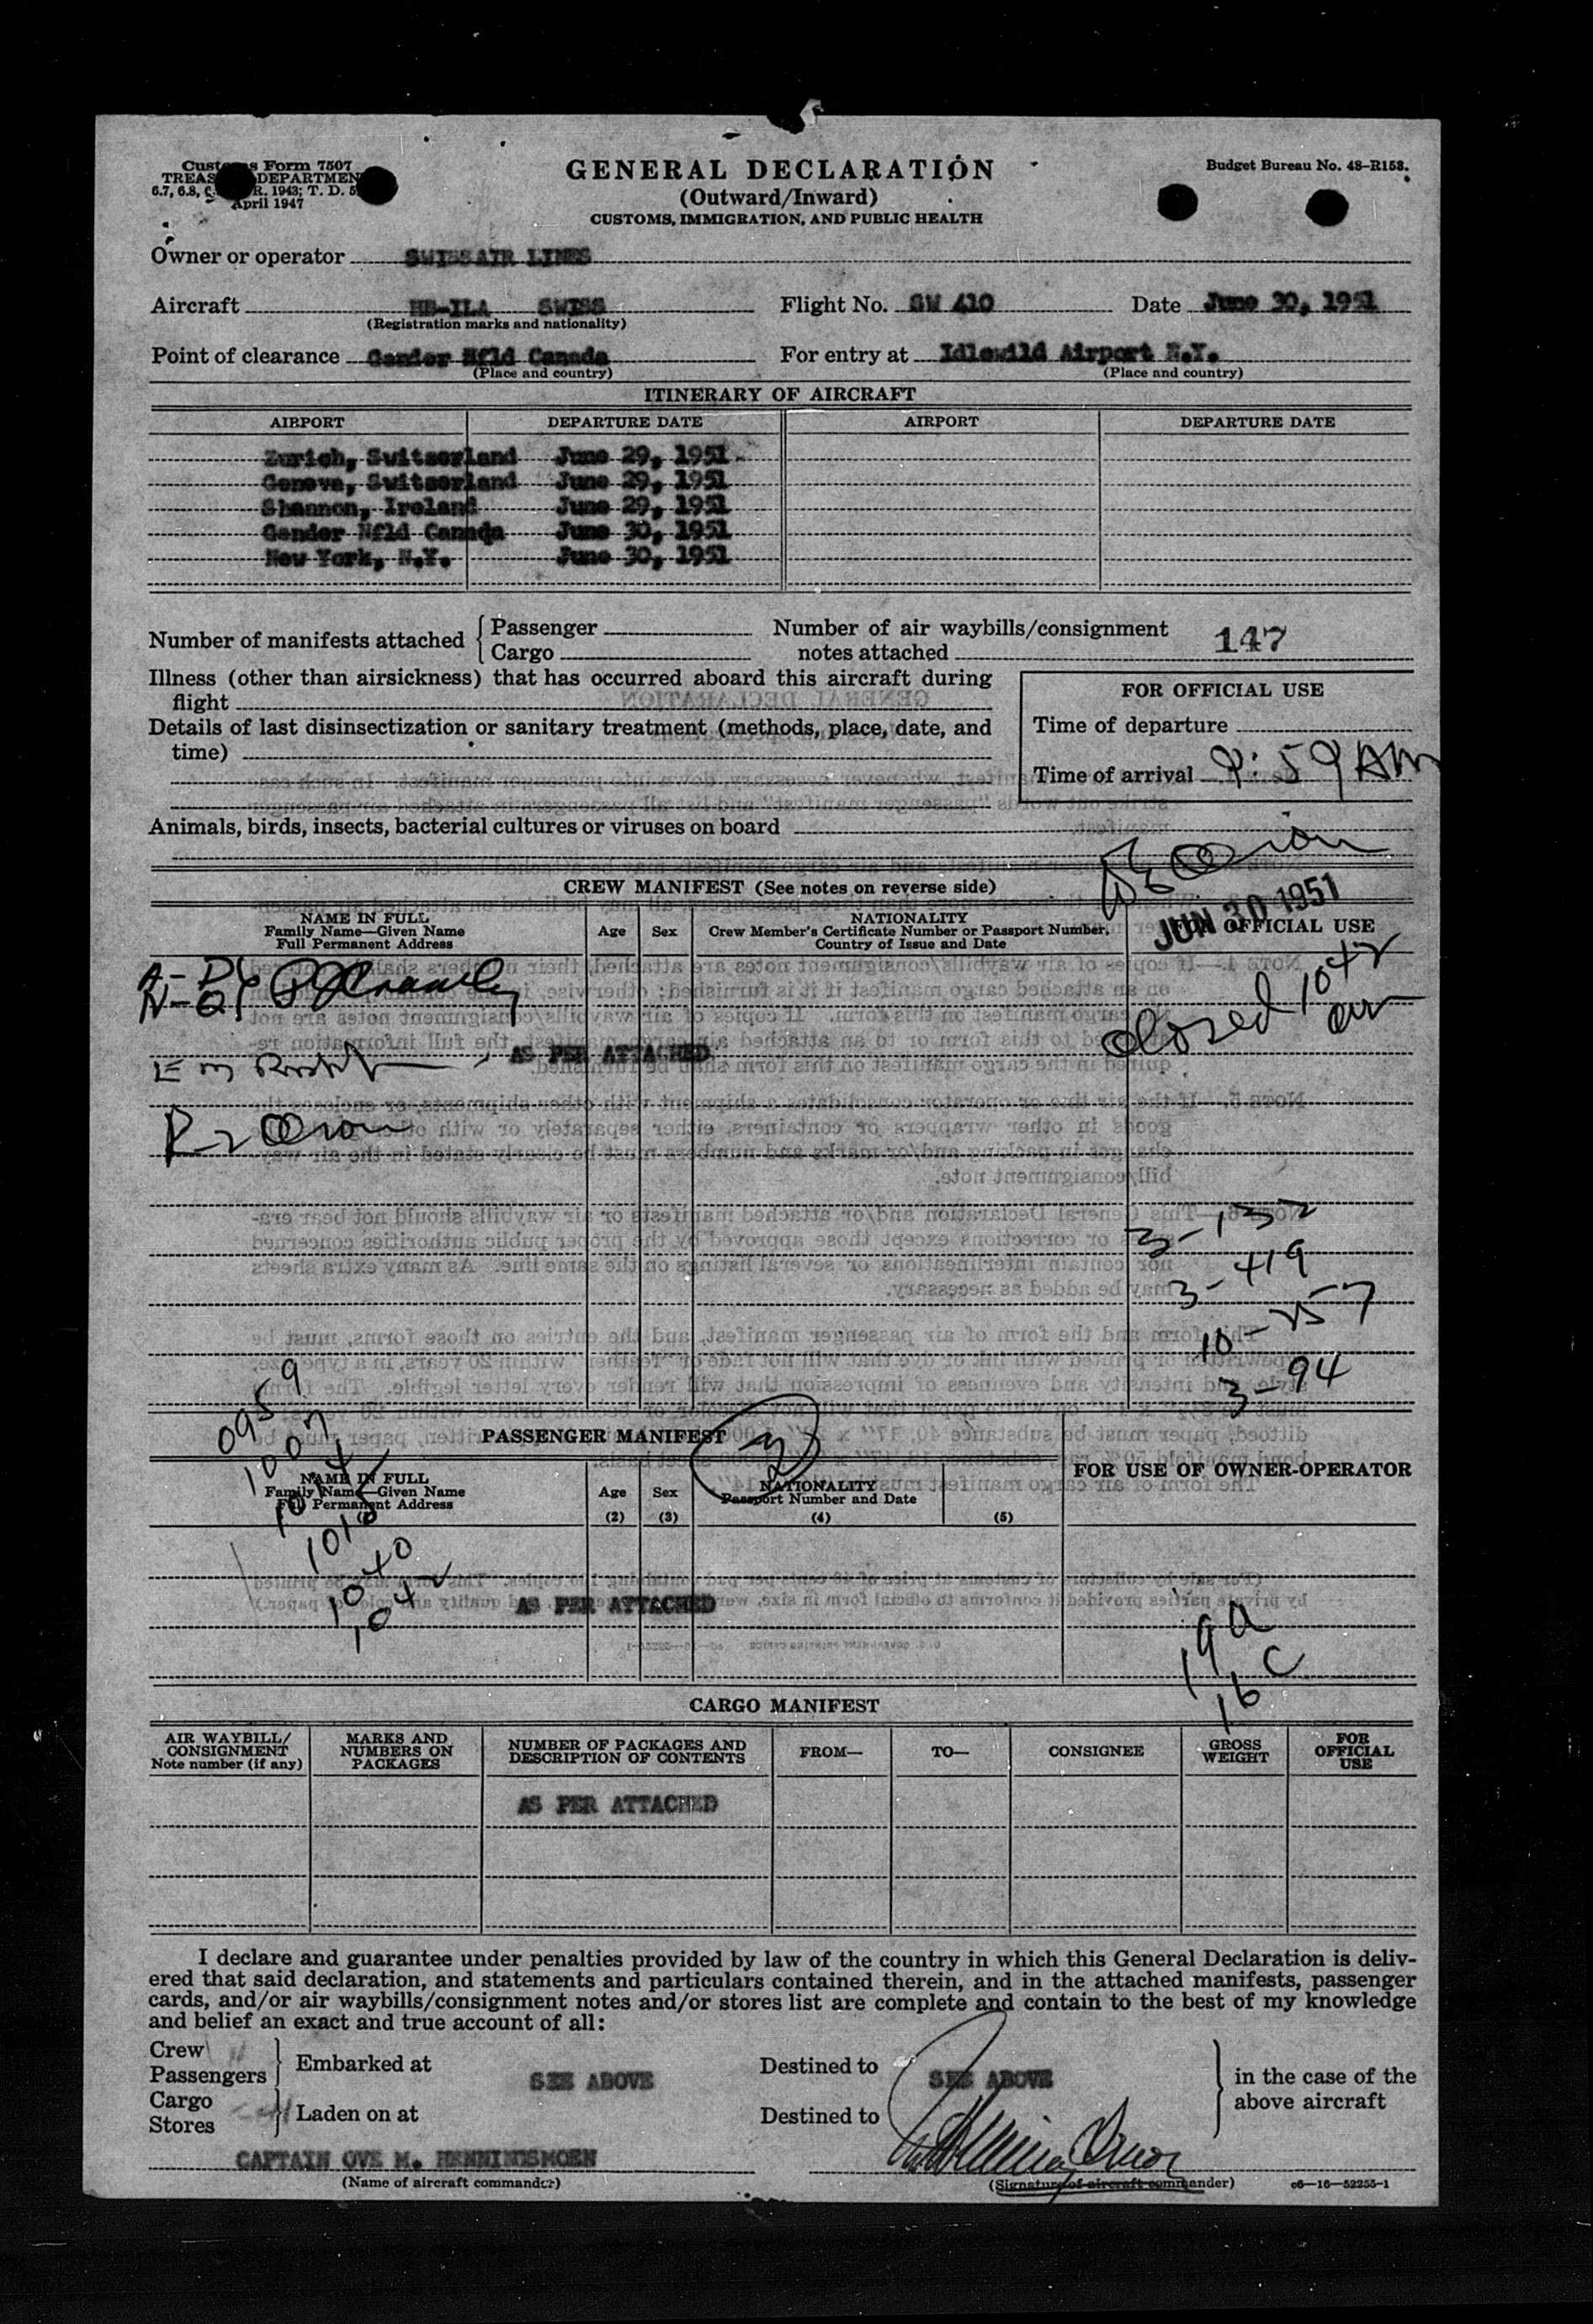 Customs Form 7507
TREAS DEPARTMEN
6.7, 6.8, R. 1943; T. D. 5
April 1947
GENERAL DECLARATION
(Outward/Inward)
CUSTOMS, IMMIGRATION, AND PUBLIC HEALTH
Budget Bureau No. 48-R153.
Owner or operator SWISSAIR LINES
Aircraft HB-ILA SWISS Flight No. SW 410 Date June 30, 1951
(Registration marks and nationality)
Point of clearance Gander Nfld Canada For entry at Idlewild Airport N.Y.
(Place and country) (Place and country)
ITINERARY OF AIRCRAFT
AIRPORT DEPARTURE DATE AIRPORT DEPARTURE DATE
Zurich, Switzerland June 29, 1951
Geneva, Switzerland June 29, 1951
Shannon, Ireland June 29, 1951
Gander Nfld Canada June 30, 1951
New York, N.Y. June 30, 1951
Number of manifests attached { Passenger
Cargo
Number of air waybills/consignment
notes attached 147
Illness (other than airsickness) that has occurred aboard this aircraft during
flight
Details of last disinsectization or sanitary treatment (methods, place, date, and
time)
FOR OFFICIAL USE
Time of departure
Time of arrival 9:59 AM
Animals, birds, insects, bacterial cultures or viruses on board
CREW MANIFEST (See notes on reverse side)
JUN 30 1951
NAME IN FULL
Family Name—Given Name
Full Permanent Address
Age Sex
NATIONALITY
Crew Member's Certificate Number or Passport Number,
Country of Issue and Date
FOR OFFICIAL USE
closed 1042
AS PER ATTACHED
3-132
3-419
10-257
3-94
0959
1007
PASSENGER MANIFEST
NAME IN FULL
Family Name—Given Name
Full Permanent Address
Age
(2)
Sex
(3)
NATIONALITY
Passport Number and Date
(4) (5)
FOR USE OF OWNER-OPERATOR
1040
1042
AS PER ATTACHED
19 a
16 C
CARGO MANIFEST
AIR WAYBILL/
CONSIGNMENT
Note number (if any)
MARKS AND
NUMBERS ON
PACKAGES
NUMBER OF PACKAGES AND
DESCRIPTION OF CONTENTS
FROM— TO— CONSIGNEE
GROSS
WEIGHT
FOR
OFFICIAL
USE
AS PER ATTACHED
I declare and guarantee under penalties provided by law of the country in which this General Declaration is deliv-
ered that said declaration, and statements and particulars contained therein, and in the attached manifests, passenger
cards, and/or air waybills/consignment notes and/or stores list are complete and contain to the best of my knowledge
and belief an exact and true account of all:
Crew
Passengers } Embarked at SEE ABOVE Destined to SEE ABOVE
Cargo
Stores } Laden on at Destined to
} in the case of the
above aircraft
CAPTAIN OVE M. HENNINGSMOEN
(Name of aircraft commander) (Signature of aircraft commander) c6—16—52255-1